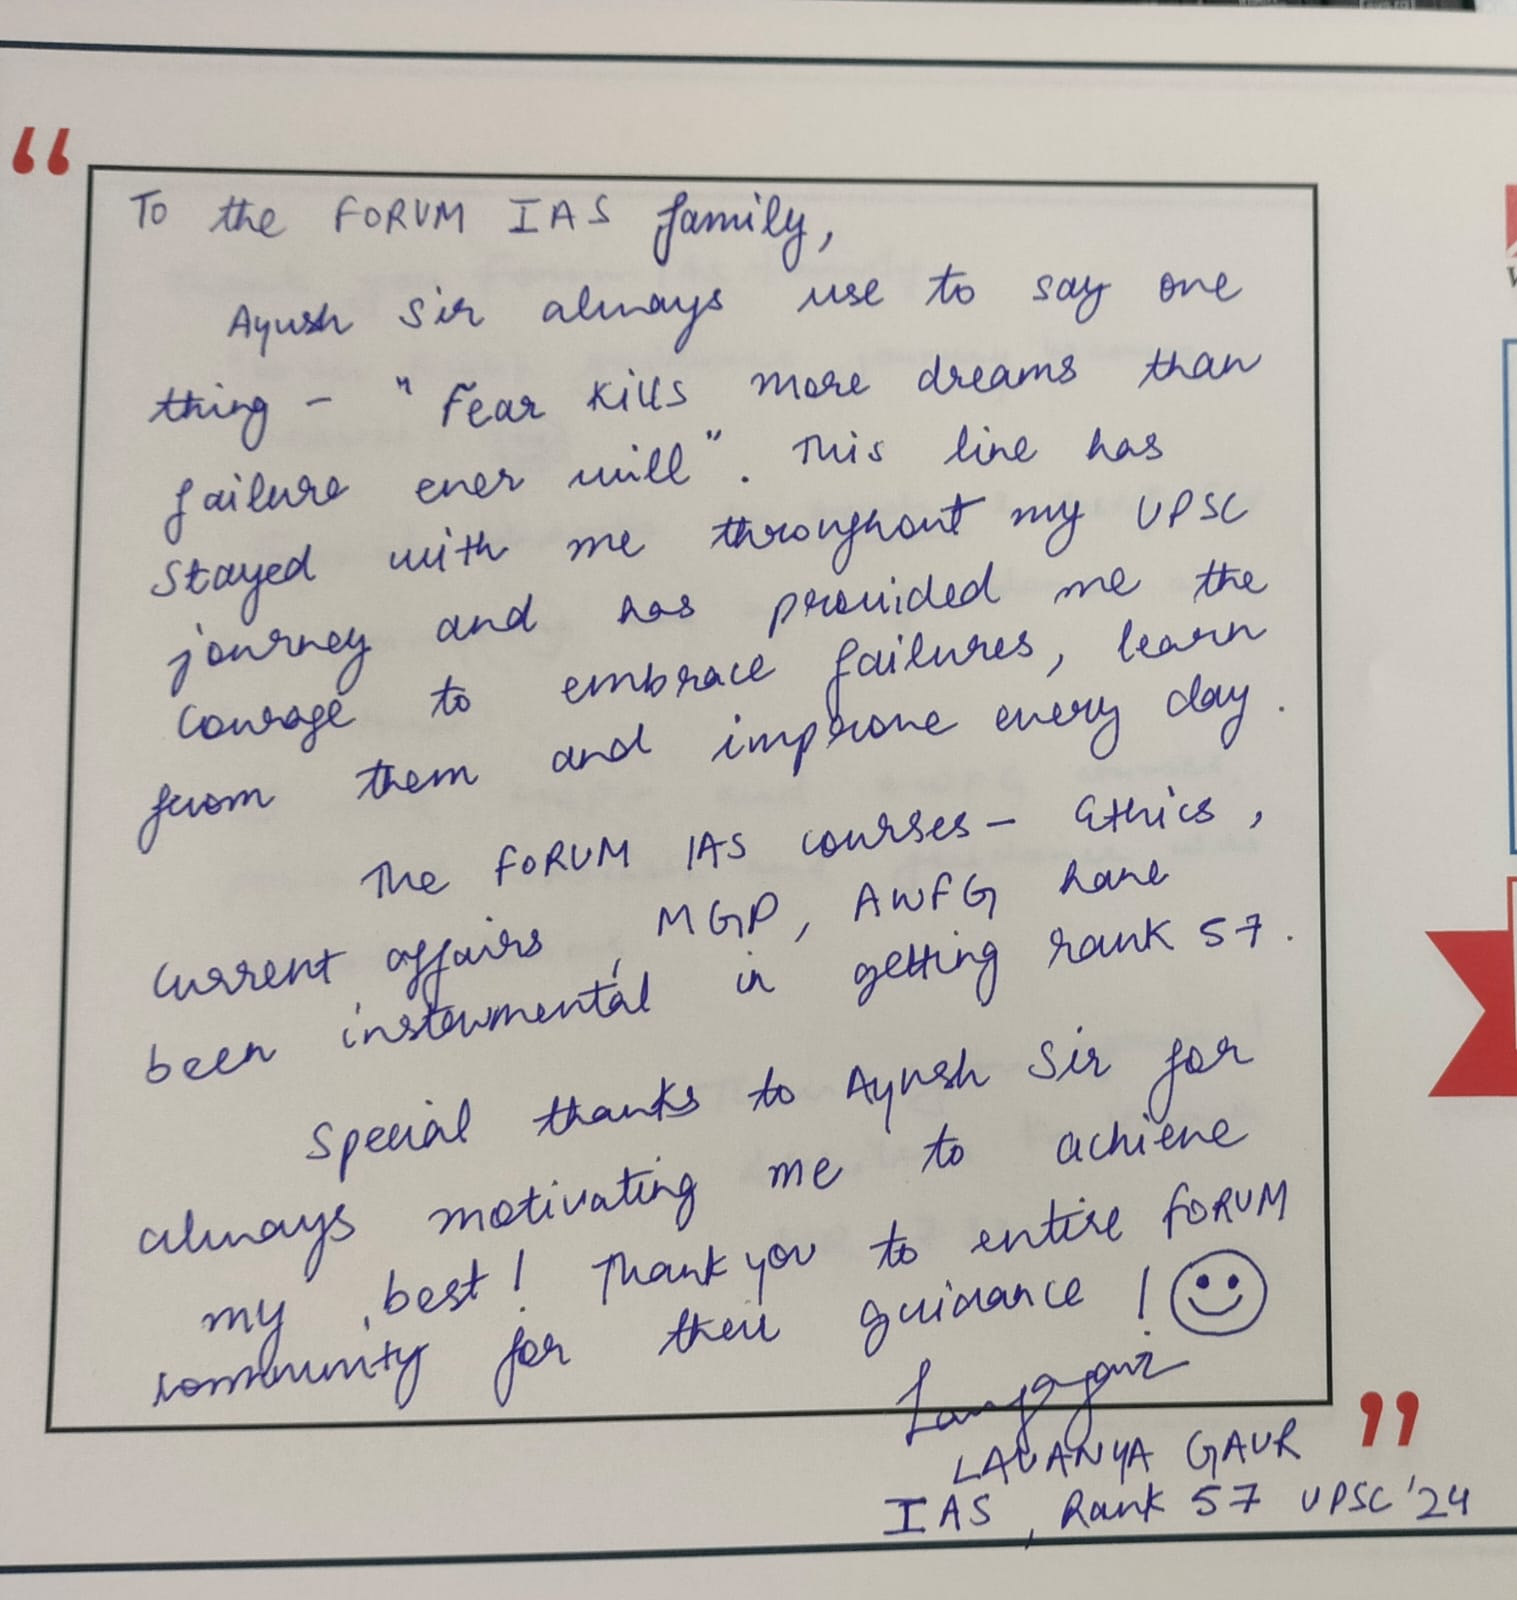 To the FORUM IAS family,
Ayush Sir always use to say one
thing - "Fear kills more dreams than
failure ever will". This line has
stayed with me throughout my UPSC
journey and has provided me the
courage to embrace failures, learn
from them and improve every day.
The FORUM IAS courses - Ethics,
Current affairs, MGP, AWFG have
been instrumental in getting rank 57.
Special thanks to Ayush Sir for
always motivating me to achieve
my best! Thank you to entire FORUM
community for their guidance!
LAVANYA GAUR
IAS, Rank 57 UPSC '24